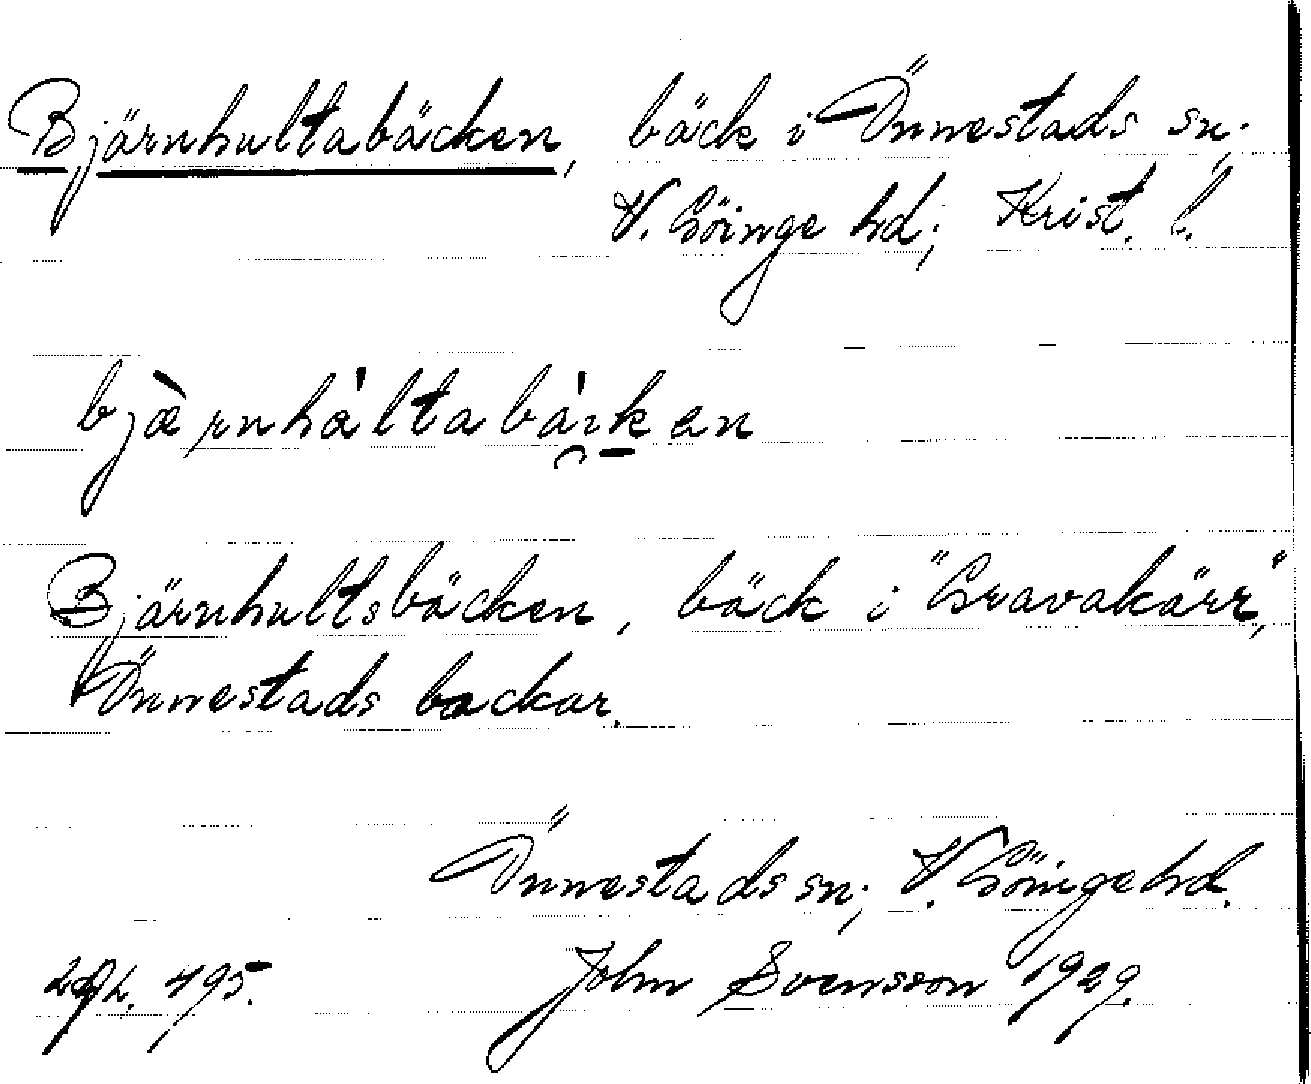 Bjärnhultabäcken, bäck i Önnestads sn.
V. Göinge hd; Krist. l.
bjæ̀rnhál̀tabákan
Bjärnhultsbäcken, bäck i "Gravakärr",
Önnestads backar.
Önnestads sn; V. Göinge hd.
495. John Svensson 1929.